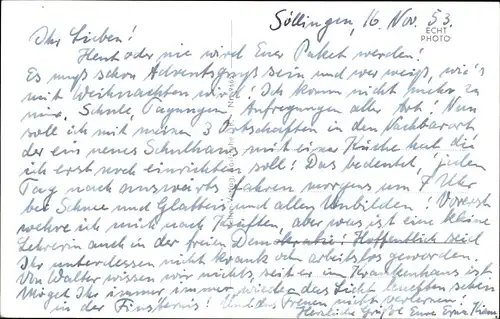 Söllingen, 16. Nov. 53.
ECHT
PHOTO
Ihr Lieben!
Heut oder nie wird Euer Paket werden!
Es muß schon Adventsgruß sein und wer weiß, wie's
mit Weihnachten wird! Ich komm nicht mehr zu
mir, Schule, Tagungen, Aufregungen aller Art! Nun
soll ich mit meinen 3 Ortschaften in den Nachbarort
der ein neues Schulhaus mit einer Küche hat die
ich erst noch einrichten soll! Das bedeutet, jeden
Tag nach auswärts fahren morgens um 7 Uhr
bei Schnee und Glatteis und allen Unbilden! Vorerst
wehre ich mich nach Kräften, aber was ist eine kleine
Lehrerin auch in der freien Demokratie! Hoffentlich seid
Ihr unterdessen nicht krank od. arbeitslos geworden.
Von Walter wissen wir nichts, seit er im Krankenhaus ist.
Möget Ihr immer immer wieder das Licht leuchten sehen
in der Finsternis! Und das Freuen nicht verlernen!
Herzliche Grüße Eure Erna